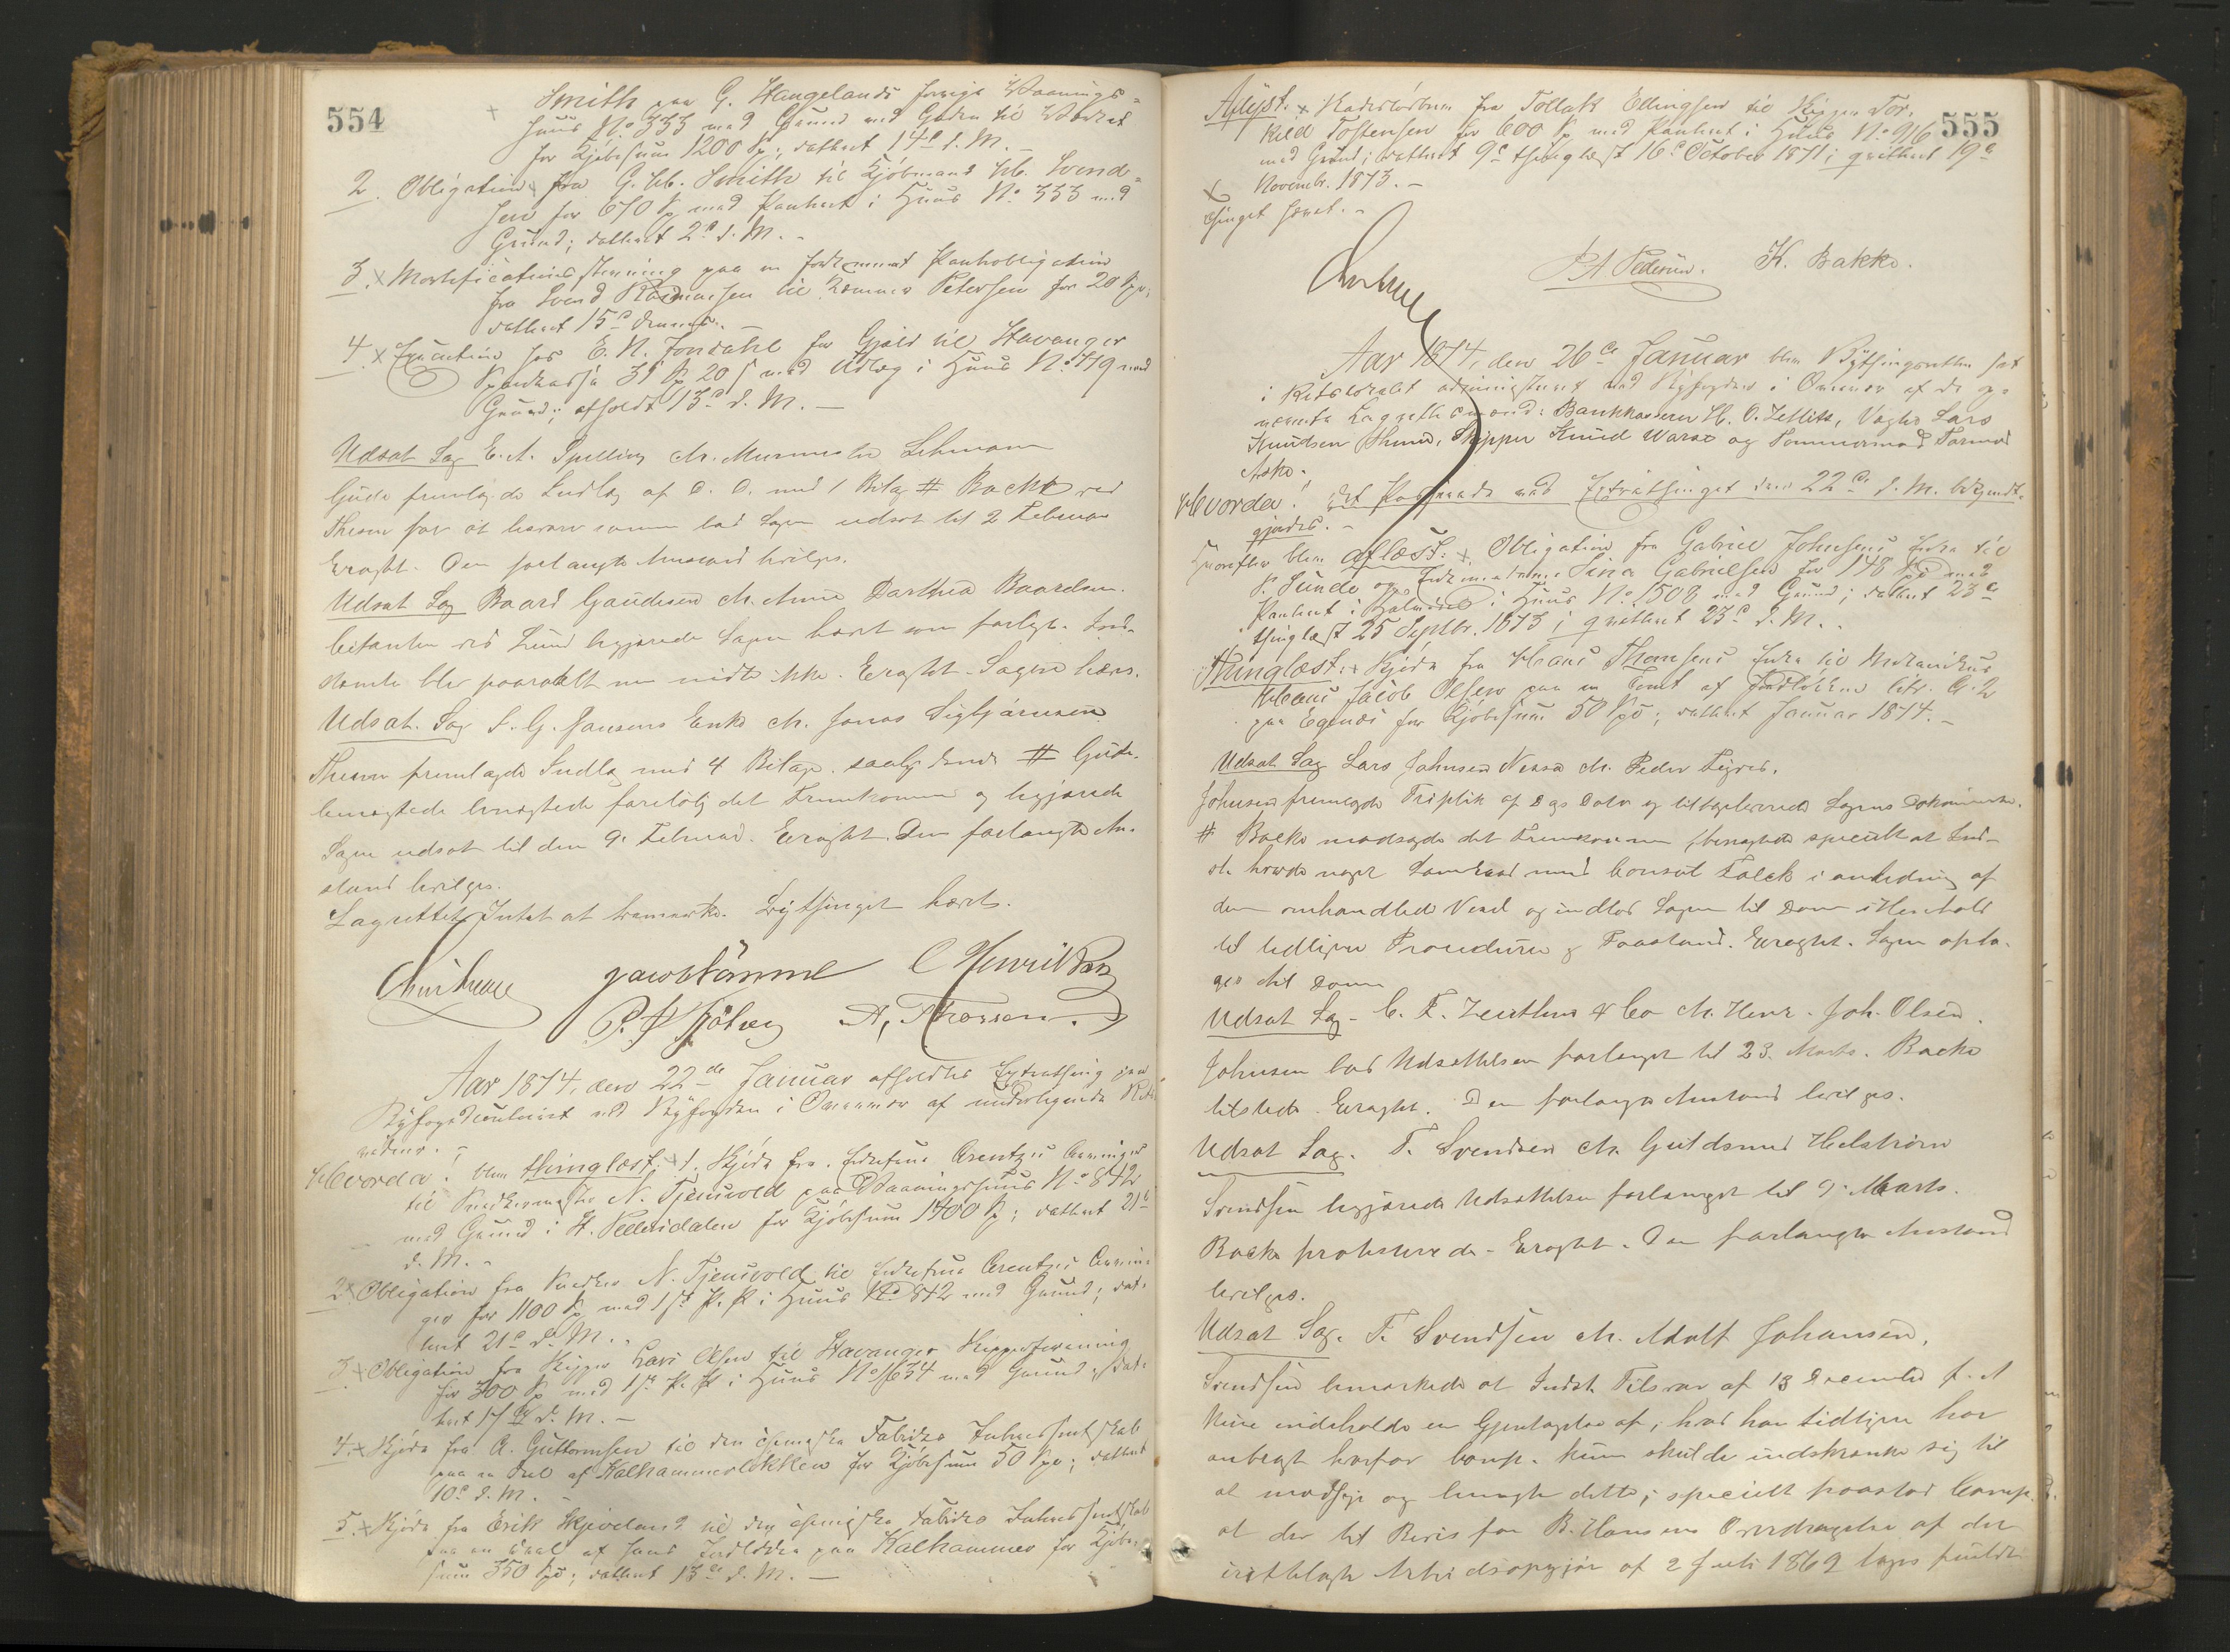 554
Smith paa G. Haugelands forrige Vaanings-
huus No 333 med Grund ved Gaden til
for Kjøbesum 1200 Sp; dateret 14de d. M. -
2. Obligation fra G. Chr. Smith til Kjøbmand Chr. Svend-
sen for 670 Sp med Panteret i Huus No 333 med
Grund; dateret 2de d. M. -
3. Mortificationsstevning paa en forkommet Panteobligation
fra Svend Rasmussen til Kæmner Petersen for 20 Spd;
dateret 15de
4. Execution hos E. N. Jondahl for Gjæld til Stavanger
Sparekasse 31 Sp 20 s med Udlæg i Huus No 419 med
Grund; afholdt 13de d. M. -
Udsat Sag E. A. Spelling ctr. Murmester Lehmann
Gude fremlagde Indlæg af D. D. med 1 Bilag # Bache ved
Thesen for at besvare samme bad Sagen udsat til 2 Februar
Eragtet. Den forlangte Anstand bevilges.
Udsat Sag Baard Gaudesen ctr. Anne Dorthea Baardsen.
Citanten ved Lund begjærede Sagen hævet som forligt. Ind-
stevnte blev paaraabt men mødte ikke. Eragtet. Sagen hæves.
Udsat Sag S. G. Jansens Enke ctr. Jonas Sigbjørnsen
Thesen fremlagde Indlæg med 4 Bilage. saalydende # Gude.
benægtede benægtede foreløbig det Fremkomne og begjærede
Sagen udsat til den 9. Februar. Eragtet. Den forlangte An-
stand bevilges.
Lagrettet Intet at bemærke. Bythinget hævet.
C Henriksen
A. Thorsen.
Aar 1874, den 22de Januar afholdtes Extrathing paa
Byfogedcontoiret ved Byfogden i Overvær af undertegnede Rets-
vidner. -
Hvorda! blev thinglæst: x 1. Skjøde fra Enkefrue Arentzes Arvinger
til Snedkermester N. Tjensvold paa Vaaningshuus No 842
med Grund i St. Pedersdalen for Kjøbesum 1400 Sp; dateret 21de
d. M. -
2x Obligation fra Snedker N. Tjensvold til Enkefrue Arentzes Arvin-
ger for 1100 Sp med 1ste P. R. i Huus No 842 med Grund; dat-
eret 21de d. M. -
3. x Obligation fra Skipper Lars Olsen til Stavanger Skipperforening
for 300 Sp med 1ste P. R. i Huus No 1634 med Grund; dat-
eret 17de d. M. -
4. x Skjøde fra A. Guttormsen til den chemiske Fabriks Interessentskab
paa en Deel af Kalhammerløkken for Kjøbesum 50 Spd; dateret
10de d. M. -
5. x Skjøde fra Erik Skjeveland til den chemiske Fabriks Interessentskab
paa en Deel af hans Jordløkke paa Kalhammer for Kjøbe-
sum 350 Spd; dateret 13de d. M. -
555
Aflyst: x fra Tollak Ellingsen til Skipper Tor-
kild Tostensen for 600 Sp med Panteret i Huus No 916
med Grund; dateret 9de thinglæst 16de October 1871; qvitteret 19de
Novembr. 1873. -
Thinget hævet. -
P A Pedersen. K. Bakke.
Aar 1874, den 26de Januar blev Bythingsretten sat
i Retslokalet administreret ved Byfogden i Overvær af de op-
nævnte Lagrettesmænd: Bankkasserer H. O. Zetlitz, Vægter Lars
Knudsen Skipper Knud og Tømmermand Tormod
Aske.
Hvorda! det Passerede ved Extrathinget den 22de d. M. bekjendt-
gjordes. -
Hvorefter blev aflæst: x Obligation fra Gabriel Johnsens Enke til
P. Sunde og Sina Gabrielsen for 148 Sp med
Panteret i i Huus No 1508 med Grund; dateret 23de
thinglæst 25 Septbr. 1873; qvitteret 23de d. M. -
Thinglæst: x Skjøde fra Hans Thomsens Enke til Mekanikus
Hans Jacob Olsen paa en Tomt af Jordløkken litr. A. 2
paa Egenæs for Kjøbesum 50 Spd; dateret Januar 1874. -
Udsat Sag Lars Johnsen Nessa ctr. Peder Figved.
Johnsen fremlagde Triplik af Dags Dato og tilbageleverede Sagens Dokumenter.
# Backe modsagde det Fremkomne, benægtede specielt at Ind-
ste havde noget Samkvæd med Consul Falck i anledning af
den omhandlede Vexel og indlod Sagen til Dom i Henhold
til tidligere Procedure & Paastand. Eragtet. Sagen opta-
ges til Dom
Udsat Sag - C. F. Zeuthen & Co ctr. Henr. Joh. Olsen.
Johnsen bad Udsættelsen forlænget til 23. Marts. Backe
tilstede. Eragtet. Den forlangte Anstand bevilges.
Udsat Sag. T. Svendsen ctr. Guldsmed Helstrøm
Svendsen begjærede Udsættelse forlænget til 9. Marts.
Backe protesterede - Eragtet. Den forlangte Anstand
bevilges.
Udsat Sag. T. Svendsen ctr. Adolf Johansen.
Svendsen bemærkede at Indst. Tilsvar af 13 December f. A
kun indeholdt en Gjentagelse af, hvad han tidligere har
anbragt hvorfor Comp. kun skulde indskrænke sig til
at modsige og benægte dette; specielt paastod Comp.
at der til Bevis for B. Hansens Overdragelse af det
irettelagte Arbeidsopgjør af 2 Juli 1869 tages fuldt